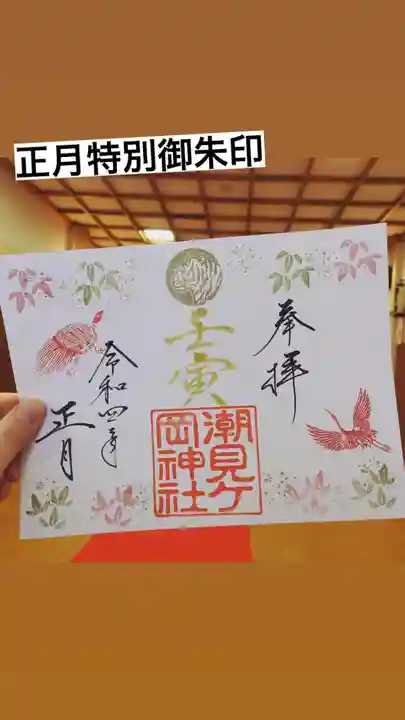 正月特別御朱印
奉拝
壬寅
潮見ケ
岡神社
令和四年
正月